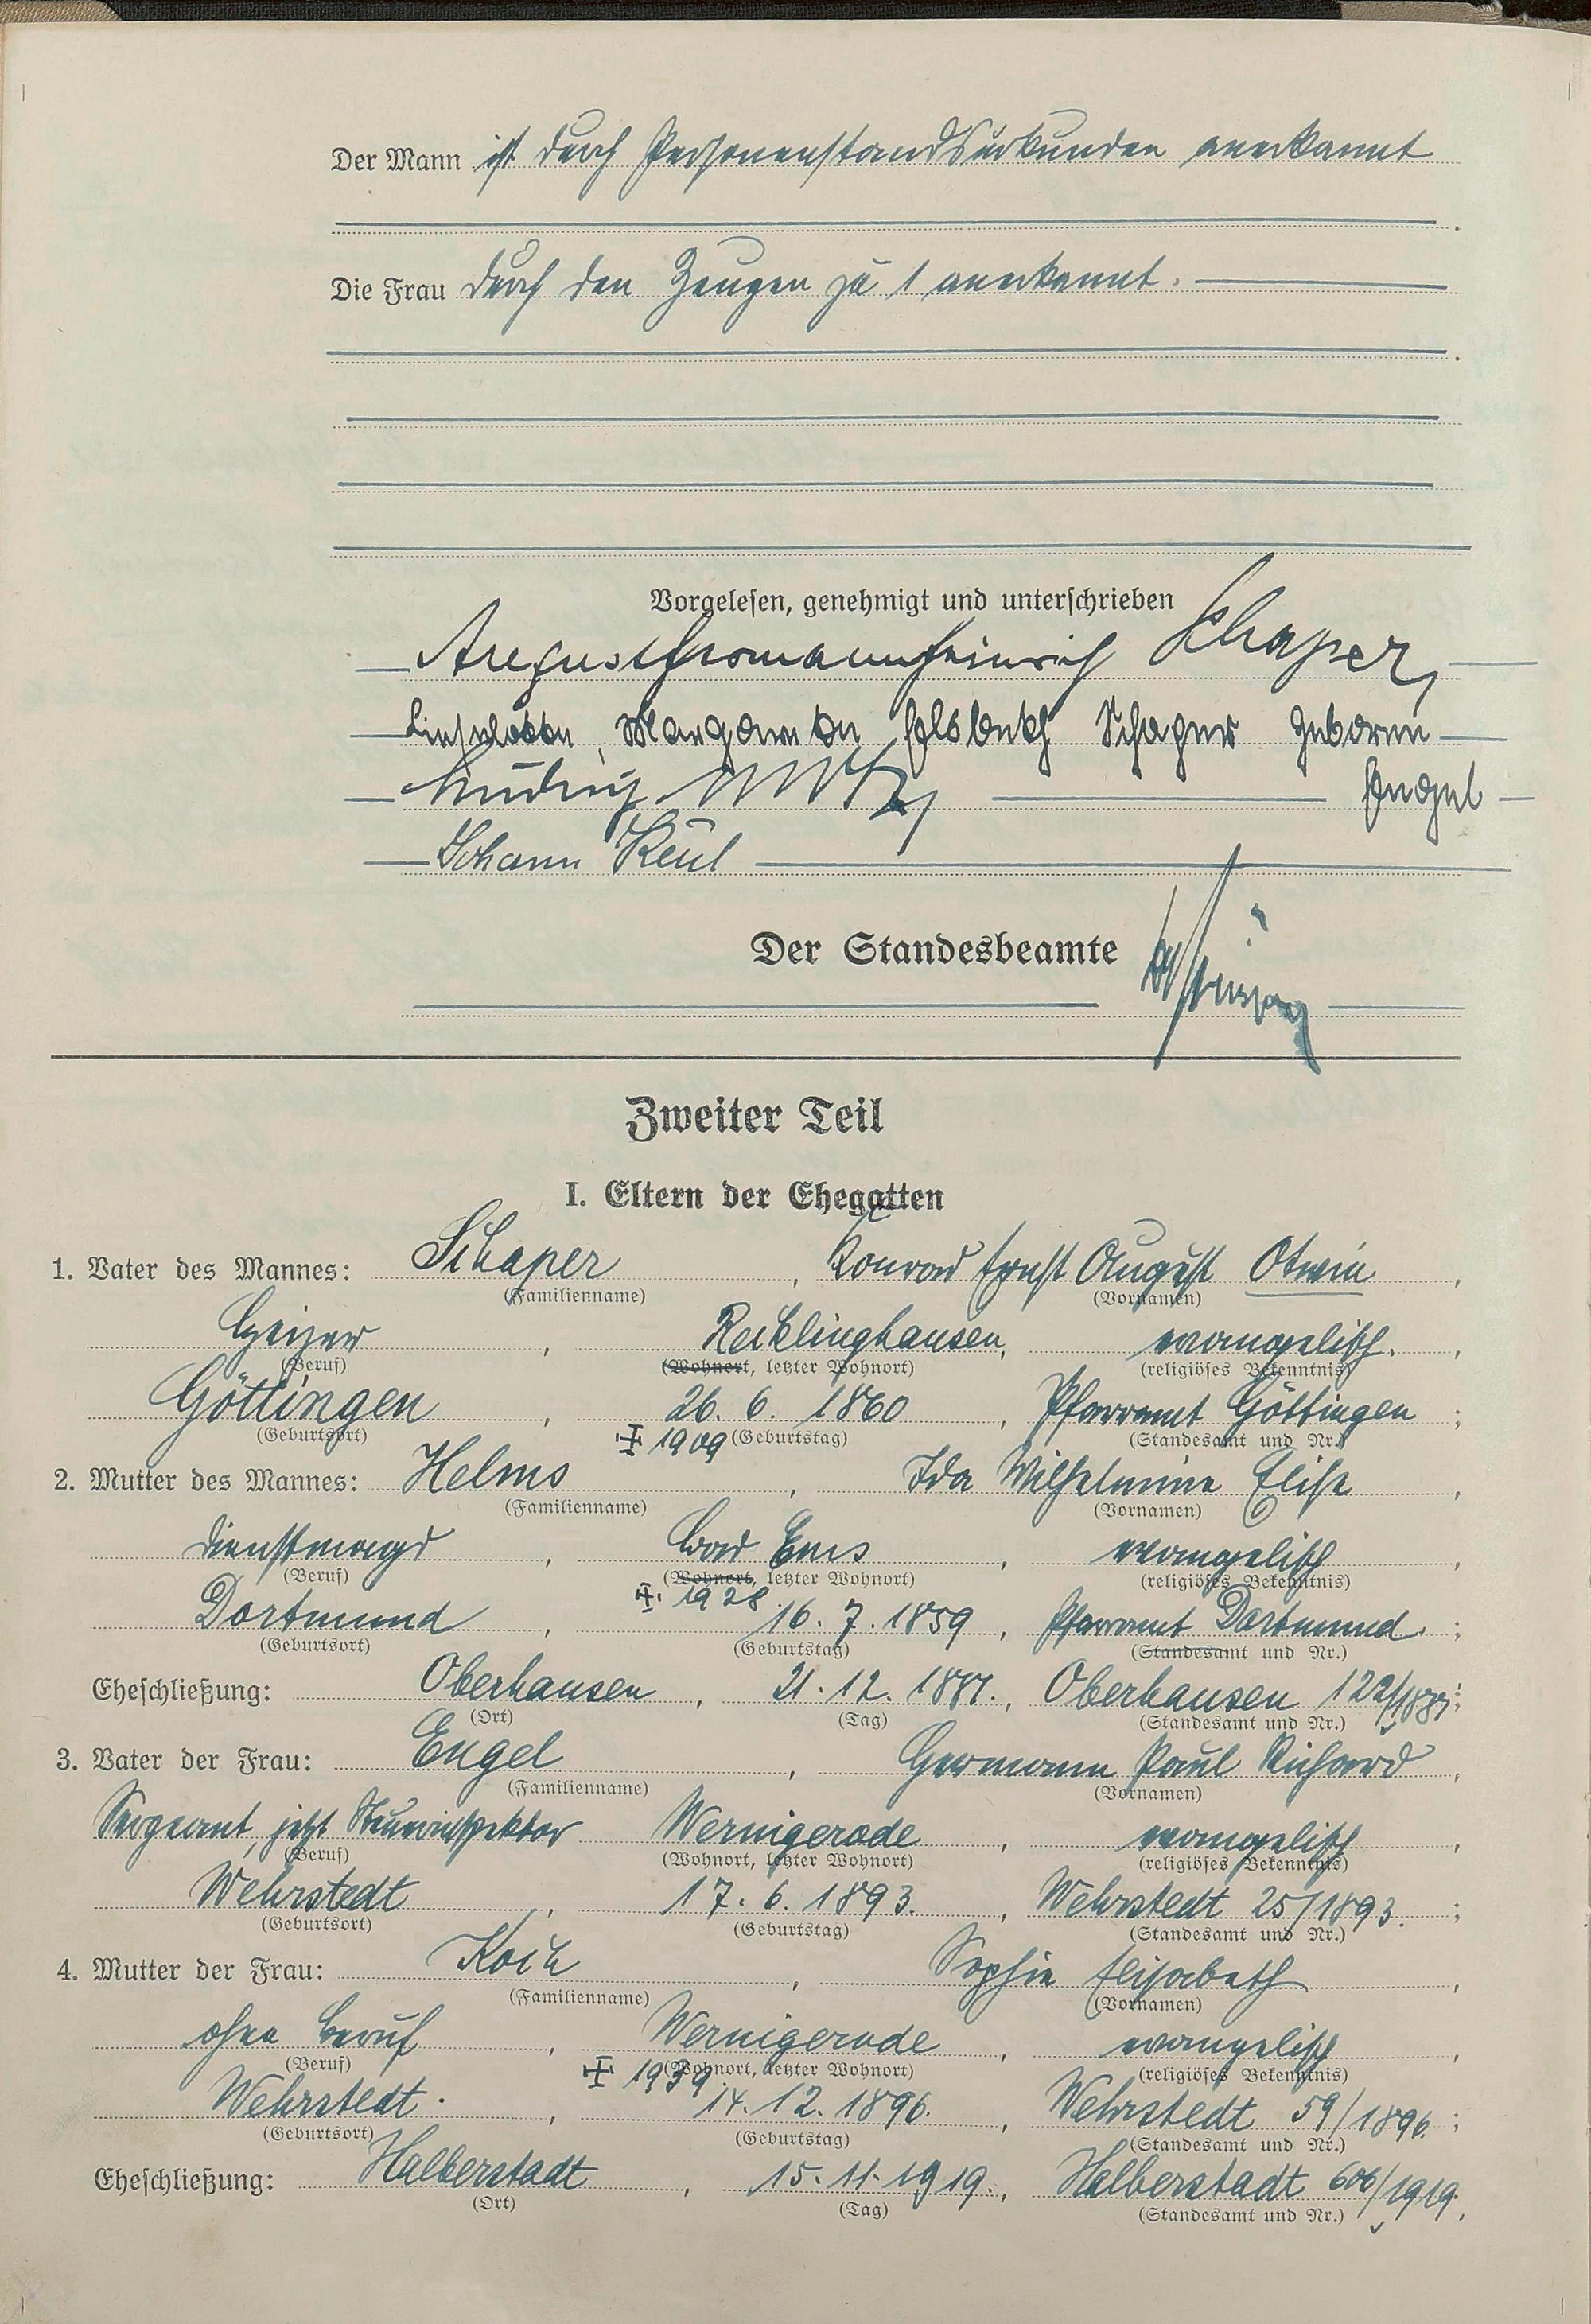 Der Mann ist durch Personenstandsurkunden anerkannt
Die Frau durch den Zeugen zu 1 anerkannt.
Vorgelesen, genehmigt und unterschrieben
August Hermann Heinrich Schaper
Lieselotte, Margarete Elsbeth Schaper geborene
Engel
Johann Keul
Der Standesbeamte
Zweiter Teil
I. Eltern der Ehegatten
1. Vater des Mannes: Schaper, Konrad Ernst August Otwin,
(Familienname) (Vornamen)
Heizer, Recklinghausen, evangelisch.,
(Beruf) (Wohnort, letzter Wohnort) (religiöses Bekenntnis)
Göttingen, 26. 6. 1860, Pfarramt Göttingen;
(Geburtsort) 1909 (Geburtstag) (Standesamt und Nr.)
2. Mutter des Mannes: Helms, Ida Wilhelmine Elise,
(Familienname) (Vornamen)
Dienstmagd, Bad Ems, evangelisch,
(Beruf) (Wohnort, letzter Wohnort) (religiöses Bekenntnis)
1928
Dortmund, 16. 7. 1859, Pfarramt Dortmund.;
(Geburtsort) (Geburtstag) (Standesamt und Nr.)
Eheschließung: Oberhausen, 21. 12. 1887., Oberhausen 122/1887;
(Ort) (Tag) (Standesamt und Nr.)
3. Vater der Frau: Engel, Hermann Paul Richard,
(Familienname) (Vornamen)
Sergeant, jetzt Steuerinspektor Wernigerode, evangelisch,
(Beruf) (Wohnort, letzter Wohnort) (religiöses Bekenntnis)
Wehrstedt, 17. 6. 1893., Wehrstedt 25/1893.;
(Geburtsort) (Geburtstag) (Standesamt und Nr.)
4. Mutter der Frau: Koch, Sophie Elisabeth,
(Familienname) (Vornamen)
ohne Beruf, Wernigerode, evangelisch,
(Beruf) 1939 (Wohnort, letzter Wohnort) (religiöses Bekenntnis)
Wehrstedt., 14. 12. 1896., Wehrstedt 59/1896.;
(Geburtsort) (Geburtstag) (Standesamt und Nr.)
Eheschließung: Halberstadt, 15. 11. 1919., Halberstadt 606/1919.
(Ort) (Tag) (Standesamt und Nr.)